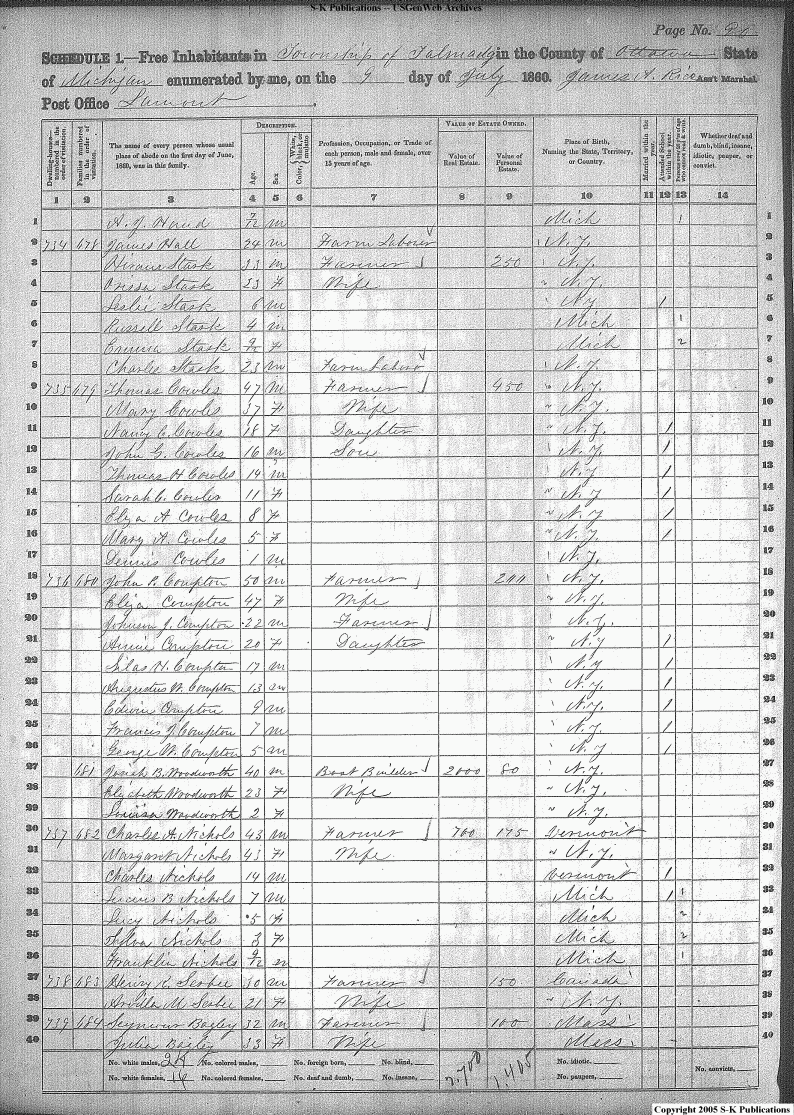 S-K Publications -- USGenWeb Archives
Page No. 90
SCHEDULE 1.—Free Inhabitants in Township of Talmadg in the County of Ottowa State
of Michigan enumerated by me, on the 9 day of July 1860. James A. Rice Ass't Marshal
Post Office Lamont.
Dwelling-houses—numbered in the order of visitation.
Families numbered in the order of visitation.
The name of every person whose usual place of abode on the first day of June, 1860, was in this family.
DESCRIPTION.
Age.
Sex
Color, White, black, or mulatto
Profession, Occupation, or Trade of each person, male and female, over 15 years of age.
VALUE OF ESTATE OWNED.
Value of Real Estate.
Value of Personal Estate.
Place of Birth, Naming the State, Territory, or Country.
Married within the year.
Attended School within the year.
Whether deaf and dumb, blind, insane, idiotic, pauper, or convict.
1 2 3 4 5 6 7 8 9 10 11 12 13 14
1 /12 m Mich 1 1
2 734 678 James Hall 24 m Farm Laborer N.Y. 2
3 Hiram Stask 33 m Farmer 250 N.Y. 3
4 Orissa Stask 23 F Wife " N.Y. 4
5 Leslie Stask 6 m N.Y 1 5
6 Russell Stask 4 m Mich 1 6
7 Emma Stask /12 F Mich 2 7
8 Charles Stask 23 m Farm Labor N.Y. 8
9 735 679 Thomas Cowles 47 m Farmer 450 " N.Y. 9
10 Mary Cowles 37 F Wife " N.Y. 10
11 Nancy C. Cowles 18 F Daughter " N.Y. 1 11
12 John G. Cowles 16 m Son " N.Y. 1 12
13 Thomas H Cowles 14 m " N.Y 1 13
14 Sarah C. Cowles 11 F " N.Y 1 14
15 Eliza A Cowles 8 F " N.Y 1 15
16 Mary A. Cowles 5 F " N.Y. 1 16
17 Dennis Cowles 1 m N.Y. 17
18 736 680 John P. Compton 50 m Farmer 200 N.Y. 18
19 Eliza Compton 47 F Wife " N.Y. 19
20 Johnson J. Compton 22 m Farmer N.Y. 20
21 Annie Compton 20 F Daughter " N.Y 1 21
22 Silas H. Compton 17 m N.Y 1 22
23 Augustus W. Compton 13 m N.Y. 1 23
24 Edwin Compton 9 m N.Y. 1 24
25 Francis J. Compton 7 m N.Y. 1 25
26 George W. Compton 5 m N.Y 1 26
27 681 Josiah B. Woodworth 40 m Boat Builder 2000 80 N.Y. 27
28 Elizabeth Woodworth 23 F Wife " N.Y. 28
29 Louisa Woodworth 2 F " N.Y. 29
30 737 682 Charles A. Nichols 43 m Farmer 700 175 Vermont 30
31 Margaret Nichols 43 F Wife " N.Y. 31
32 Charles Nichols 14 m Vermont 1 32
33 Lucius B Nichols 7 m Mich 1 1 33
34 Lucy Nichols 5 F Mich 2 34
35 Sylva Nichols 3 F Mich 2 35
36 Franklin Nichols /12 m Mich 1 36
37 738 683 Henry E. 30 m Farmer 150 Canada 37
38 M. 21 F Wife " N.Y. 38
39 739 684 Seymour Bagley 32 m Farmer 100 Mass 39
40 Julia Bagley 33 F Wife Mass 40
No. white males, 24 No. colored males, No. foreign born, No. blind, 2,700 1,405 No. idiotic, No. convicts,
No. white females, 16 No. colored females, No. deaf and dumb, No. insane, No. paupers,
Copyright 2005 S-K Publications